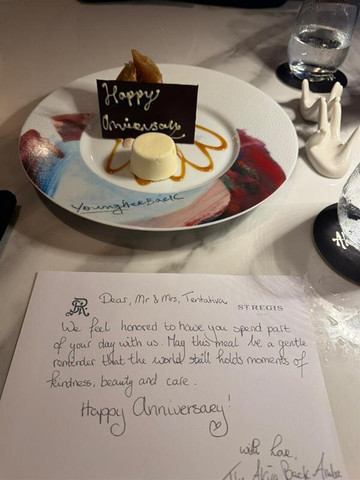 Happy
Anniersary
YoungHee Back
R
Dear, Mr & Mrs, Tentativa
ST REGIS
We feel honored to have you spend part
of your day with us. May this meal be a gentle
reminder that the world still holds moments of
kindness, beauty and care.
Happy Anniversary!
with love,
The Akira Back